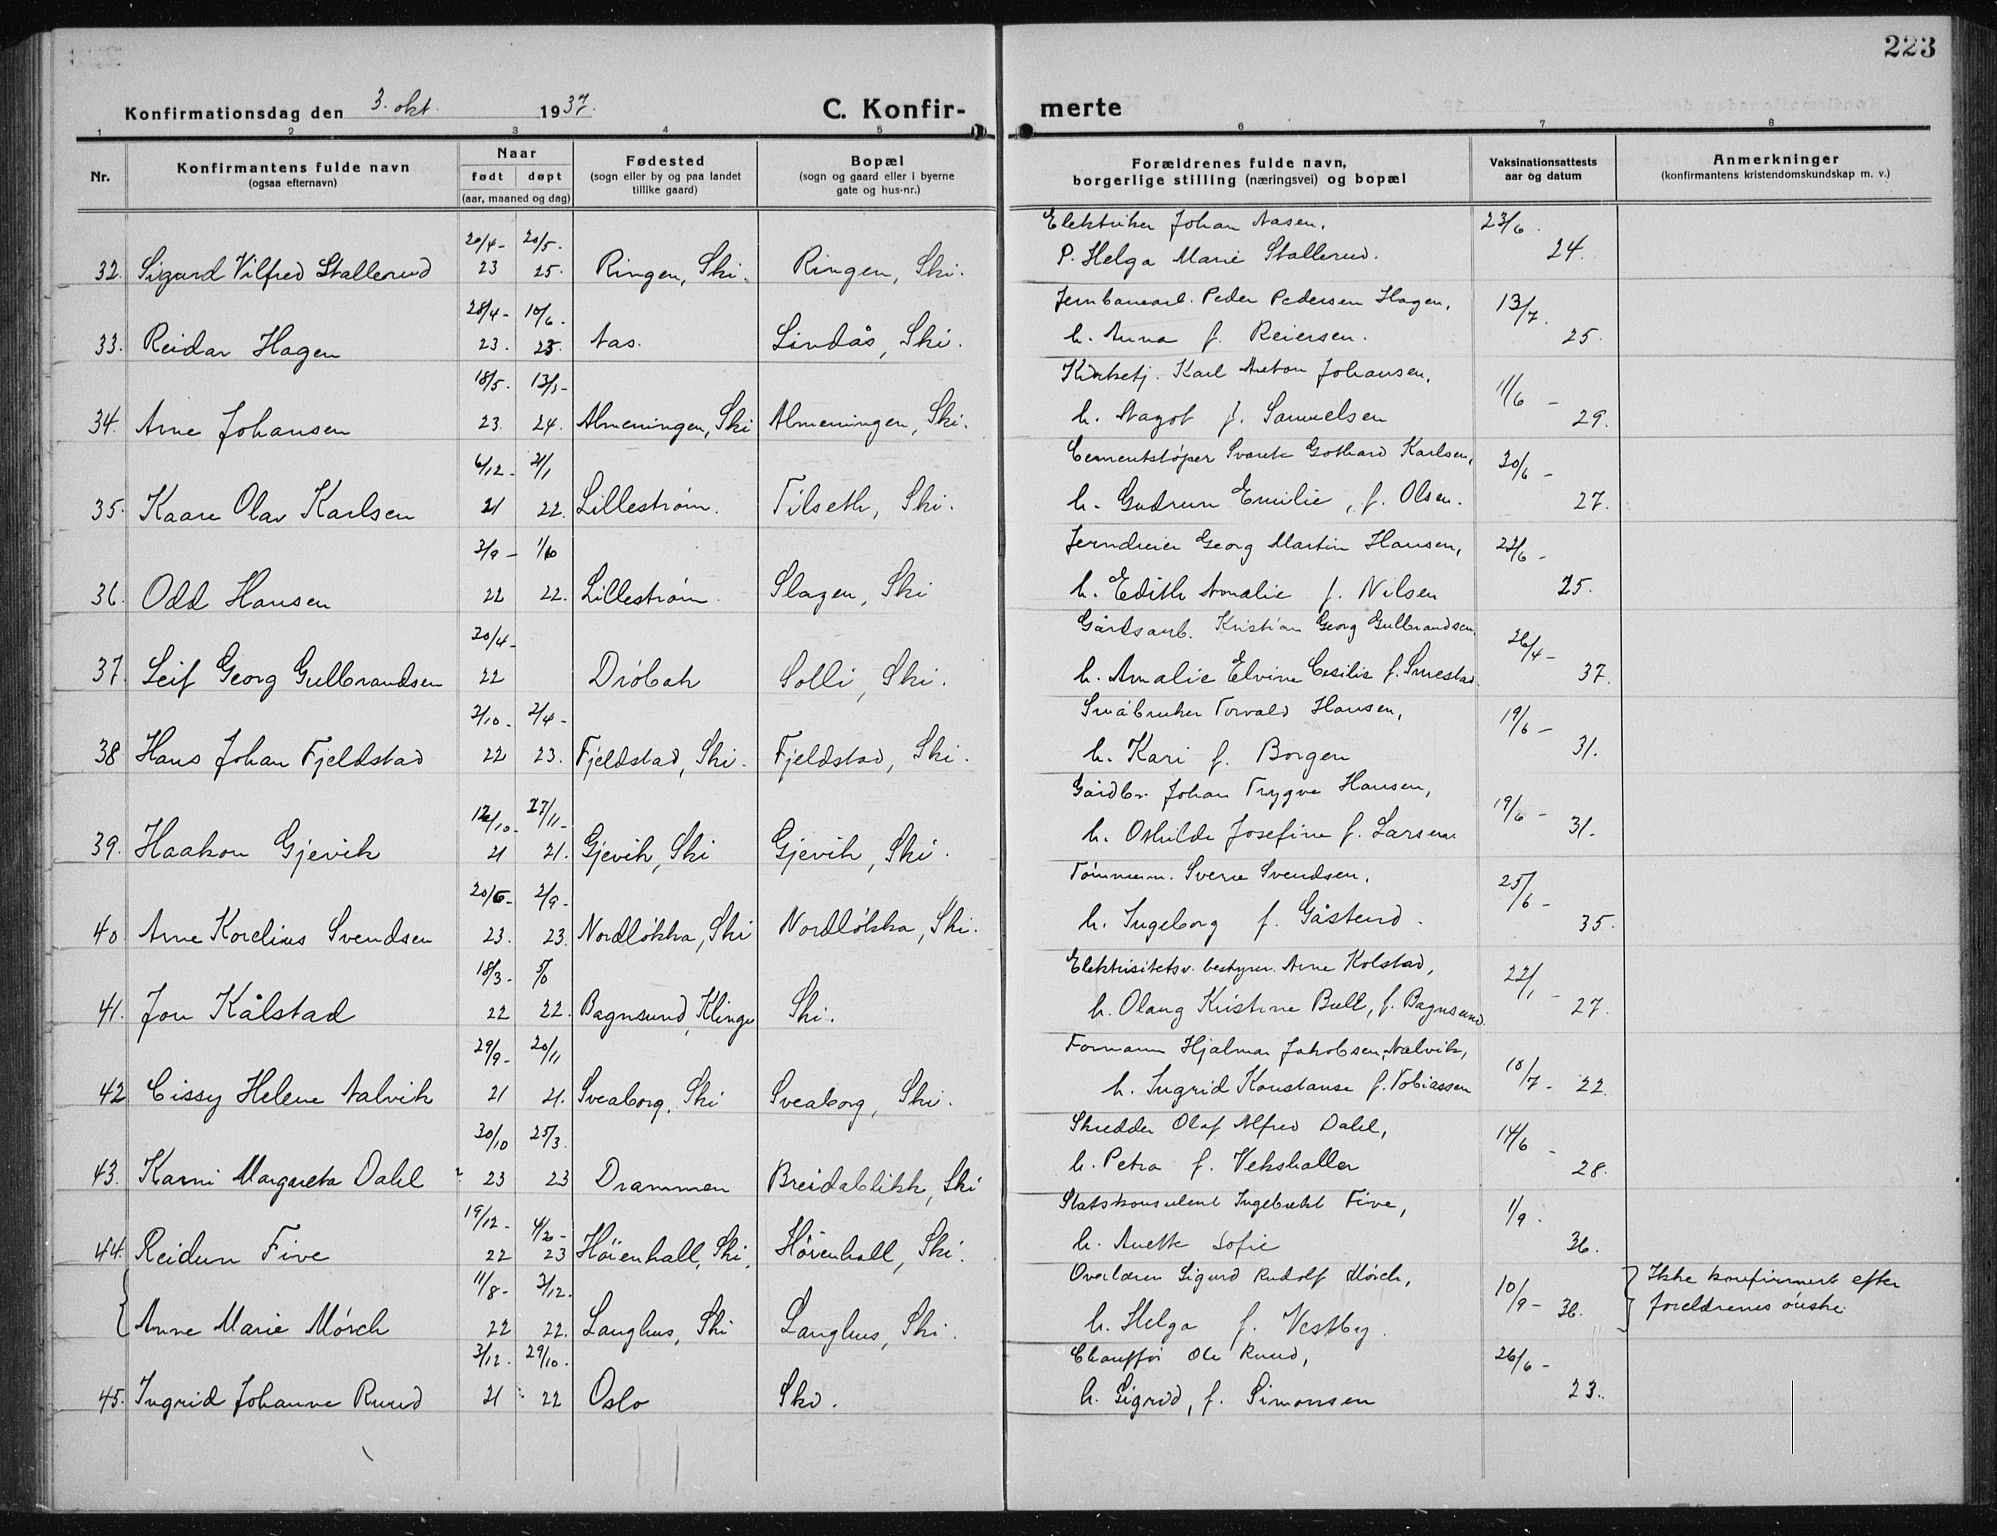 223
Konfirmationsdag den 3. okt. 1937.
C. Konfir- merte
1 2 3 4 5 6 7 8
Nr.
Konfirmantens fulde navn
(ogsaa efternavn)
Naar
født døpt
(aar, maaned og dag)
Fødested
(sogn eller by og paa landet
tillike gaard)
Bopæl
(sogn og gaard eller i byerne
gate og hus-nr.)
Forældrenes fulde navn,
borgerlige stilling (næringsvei) og bopæl
Vaksinationsattests
aar og datum
Anmerkninger
(konfirmantens kristendomskundskap m. v.)
20/4- 20/5. Elektriker Johan Aasen, 23/6.
32. Sigurd Vilfred Stallerud 23 25. Ringen, Ski. Ringen, Ski. P. Helga Marie Stallerud. 24.
28/4- 10/6. Jernbanearb. Peder Pedersen Hagen, 13/7.
33. Reidar Hagen 23. 23. Aas. Lindås, Ski. h. Anna f. Reiersen. 25.
18/5. 13/5- Karl Anton Johansen, 11/6 -
34. Arne Johansen 23. 24. Almenningen, Ski Almenningen, Ski. h. Aagot f. Samuelsen 29.
6/12- 2/1 Cementstøper Svante Gothard Karlsen, 30/6 -
35. Kaare Olav Karlsen 21 22. Lillestrøm. Tilseth, Ski. h. Gudrun Emilie, f. Olsen. 27.
3/9 - 1/10 Jerndreier Georg Martin Hansen, 22/6 -
36. Odd Hansen 22 22. Lillestrøm. Slagen, Ski h. Edith Amalie f. Nilsen 25.
30/4- Gårdsarb. Kristian Georg Gulbrandsen, 26/4 -
37. Leif Georg Gulbrandsen 22 Drøbak Solli, Ski. h. Amalie Elvine Cesilie f. Smestad. 37.
2/10. 2/4- Småbruker Torvald Hansen, 19/6 -
38 Hans Johan Fjeldstad 22 23. Fjeldstad, Ski. Fjeldstad, Ski. h. Kari f. Borgen 31.
12/10- 27/11- Gårdbr. Johan Trygve Hansen, 19/6 -
39. Haakon Gjevik 21 21. Gjevik, Ski Gjevik, Ski. h. Oshilde Josefine f. Larsen 31.
20/6- 2/9- Tømmerm. Sverre Svendsen, 25/6 -
40. Arne Kornelius Svendsen 23. 23. Nordløkka, Ski Nordløkka, Ski. h. Ingeborg f. Gåsterud. 35.
18/3- Elektrisitetsv. bestyrer Arne Kolstad, 22/1 -
41. Jon Kålstad 22 22. Bagnsund, Klinge Ski. h. Olaug Kristine Bull, f. Bagnsund. 27.
29/9- 20/11 Formann Hjalmar Jakobsen Aalvik, 10/7 - 22.
42 Cissy Helene Aalvik 21 21. Sveaborg, Ski Sveaborg, Ski. h. Ingrid Konstanse f. Tobiassen
30/10 25/3. Skredder Olaf Alfred Dahl, 14/6 -
43. Karni Margareta Dahl 23 23 Drammen Breidablikk, Ski h. Petra f. Vekshaller 28.
19/12- Statskonsulent Ingebrekt Five, 1/9.
44. Reidun Five 22 23 Høienhall, Ski, Høienhall, Ski. h. Anette Sofie 36.
11/8- 3/12. Overlærer Sigurd Rudolf Mørch, 10/9 - 36. Ikke konfirmert efter
Anne Marie Mørch 22 22. Langhus, Ski Langhus, Ski. h. Helga f. Vestby. foreldrenes ønske
3/12. 29/10. Chauffør Ole Ruud, 26/6 -
45. Ingrid Johanne Ruud 21 22 Oslo Ski. h. Sigrid, f. Simonsen 23.